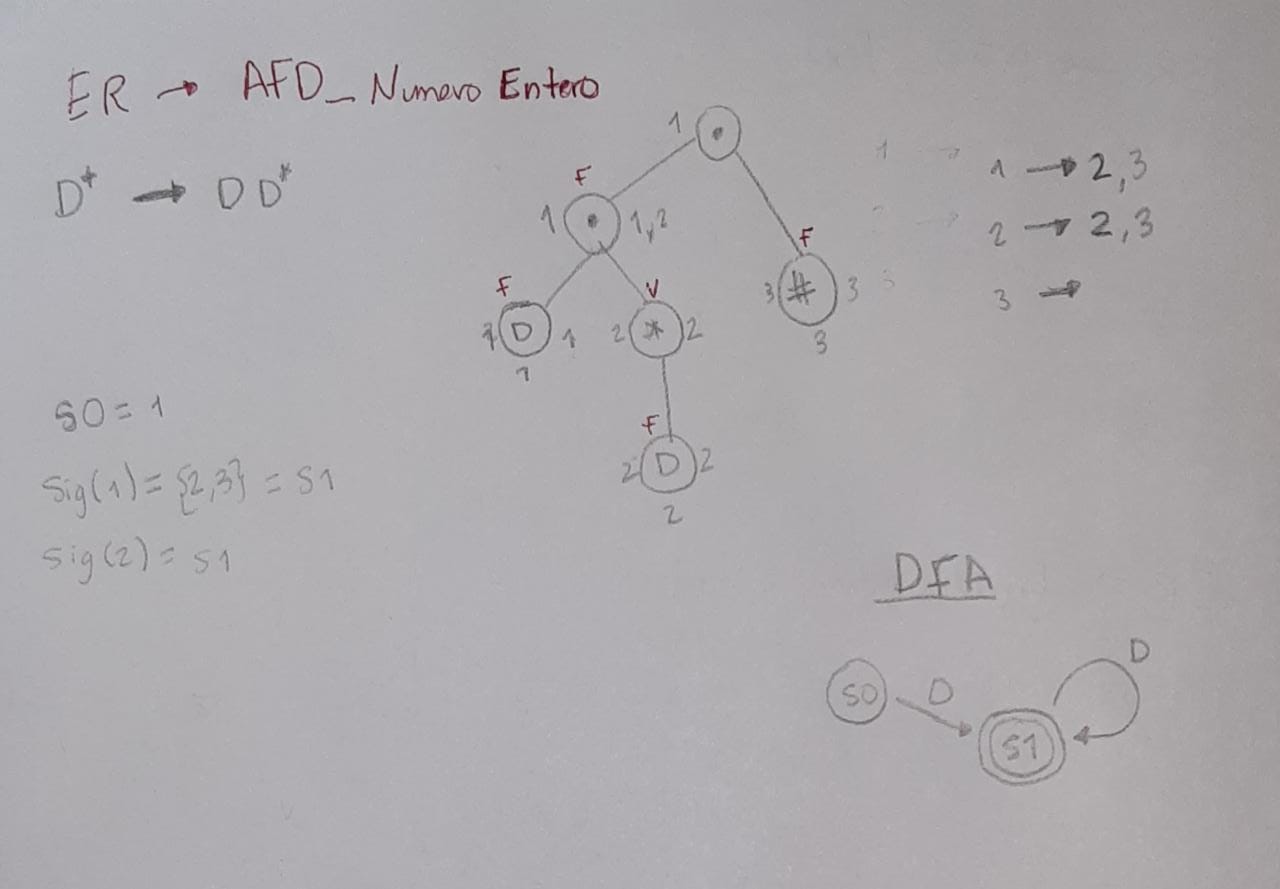 ER → AFD_ Numero Entero
D⁺ → D D*
1 •
F
1 • 1,2
F V F
1 D 1 2 * 2 3 # 3
1 3
F
2 D 2
2
1 → 2,3
2 → 2,3
3 →
S0 = 1
Sig(1) = {2,3} = S1
Sig(2) = S1
DFA
D
S0 D
S1